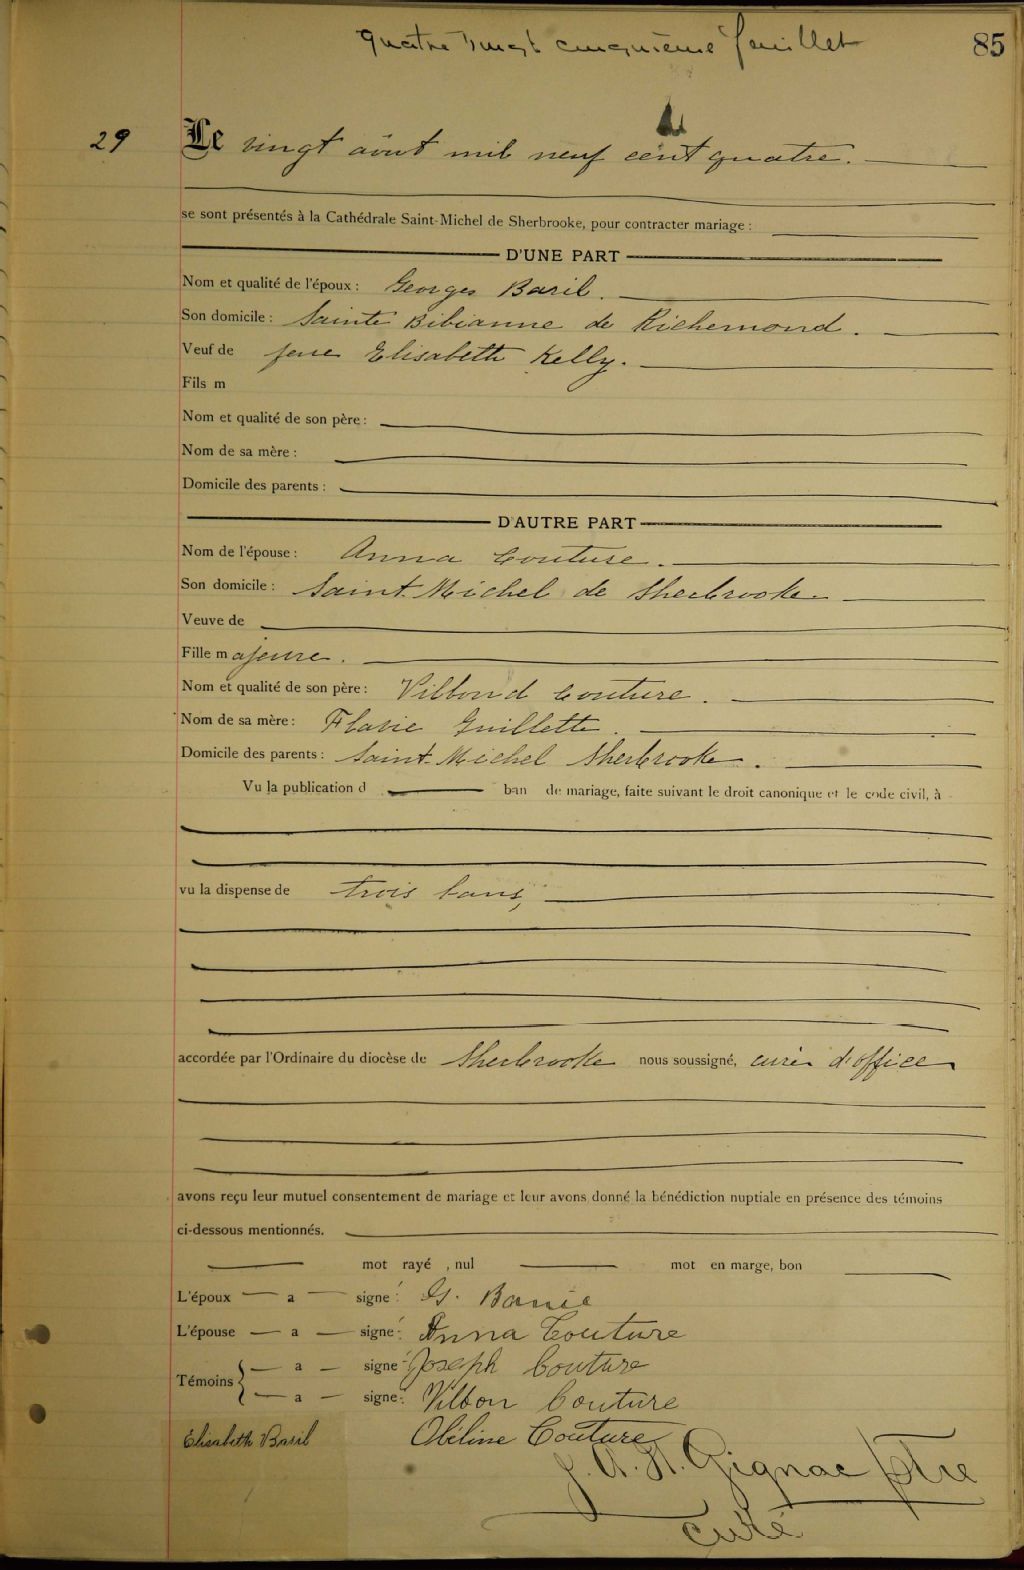 quatre vingt cinquième feuillet 85
29 Le vingt août mil neuf cent quatre.
se sont présentés à la Cathédrale Saint-Michel de Sherbrooke, pour contracter mariage :
D'UNE PART
Nom et qualité de l'époux : Georges Baril.
Son domicile : Sainte Bibianne de Richemond.
Veuf de feue Elisabeth Kelly.
Fils m
Nom et qualité de son père :
Nom de sa mère :
Domicile des parents :
D'AUTRE PART
Nom de l'épouse : Anna Couture.
Son domicile : Saint-Michel de Sherbrooke
Veuve de
Fille majeure.
Nom et qualité de son père : Vilbond Couture.
Nom de sa mère : Flavie Guillette.
Domicile des parents : Saint-Michel Sherbrooke.
Vu la publication d ban de mariage, faite suivant le droit canonique et le code civil, à
vu la dispense de trois bans,
accordée par l'Ordinaire du diocèse de Sherbrooke nous soussigné, curé d'office
avons reçu leur mutuel consentement de mariage et leur avons donné la bénédiction nuptiale en présence des témoins
ci-dessous mentionnés.
mot rayé , nul mot en marge, bon
L'époux a signé: G. Baril
L'épouse a signé: Anna Couture
Témoins { a signé: Joseph Couture
a signé: Vilbon Couture
Elisabeth Baril Abéline Couture
J. A. H. Gignac ptre
curé